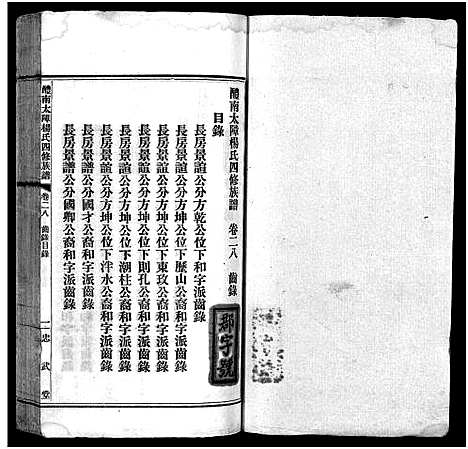 醴南太障楊氏四修族譜 卷二八 齒錄
目錄
長房景誼公分方乾公位下和字派齒錄
長房景誼公分方坤公位下歷山公裔和字派齒錄
長房景誼公分方坤公位下東玫公裔和字派齒錄
長房景誼公分方坤公位下則孔公裔和字派齒錄
長房景誼公分方坤公位下潮柱公裔和字派齒錄
長房景誼公分方坤公位下泮水公裔和字派齒錄
長房景譜公分國才公裔和字派齒錄
長房景譜公分國卿公裔和字派齒錄
郡字號
醴南太障楊氏四修族譜 卷二八 齒錄目錄 一 忠武堂